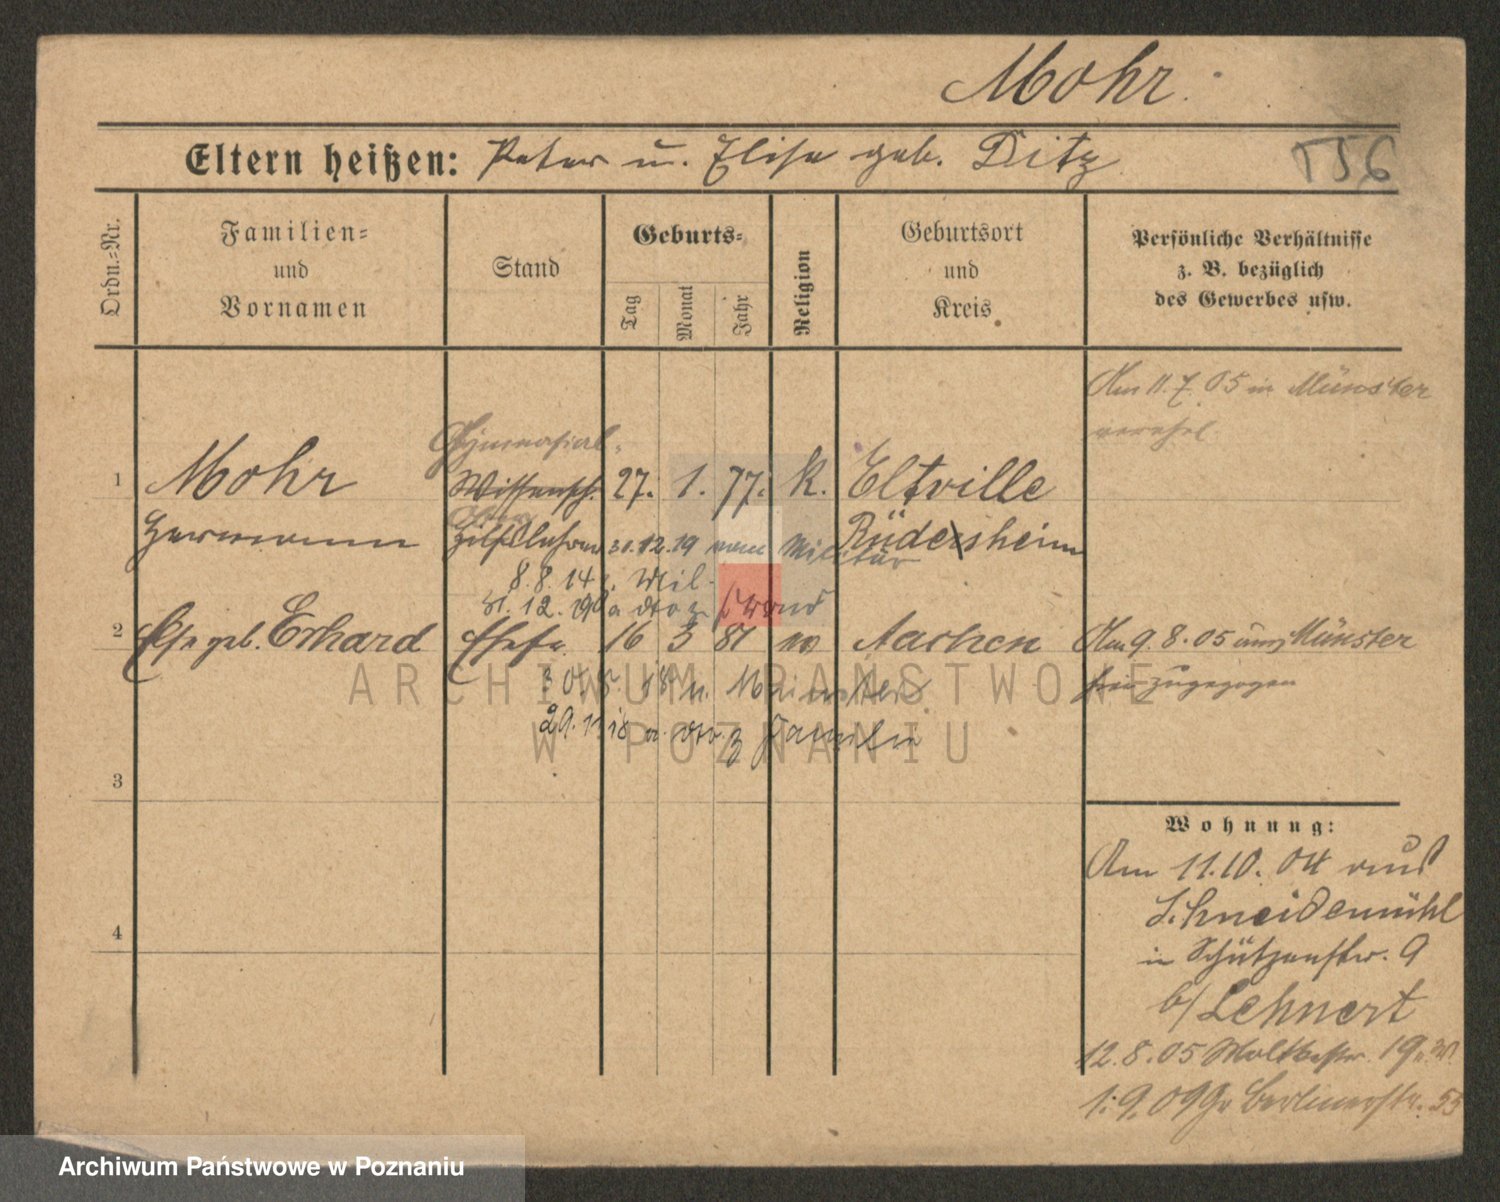 Mohr.
Eltern heißen: Peter u. Elise geb. Ditz
T56
Ordn.=Nr.
Familien=
und
Vornamen
Stand
Geburts=
Tag
Monat
Jahr
Religion
Geburtsort
und
Kreis
Persönliche Verhältnisse
z. B. bezüglich
des Gewerbes usw.
Am 11.7.05 in Münster
verehel.
Gymnasial-
1 Mohr Wissensch. 27. 1. 77. K. Eltville
Ober
Hermann Hilfslehrer 31.12.19 vom Militär Rüdesheim
8.8.14 z. Mil.
31.12.19 a dto z
2 Else geb. Erhard Ehefr. 16 3 81 Aachen
Am 9.8.05 aus Münster
zugezogen
3
29. 11 18 a. dto. z Familie
4
Wohnung:
Am 11.10.04 aus
Schneidemühl
in Schützenstr. 9
b/ Lehnert
12.8.05 Moltkestr. 19
1.9.09 Gr Berlinerstr. 53
ARCHIWUM PAŃSTWOWE
W POZNANIU
Archiwum Państwowe w Poznaniu